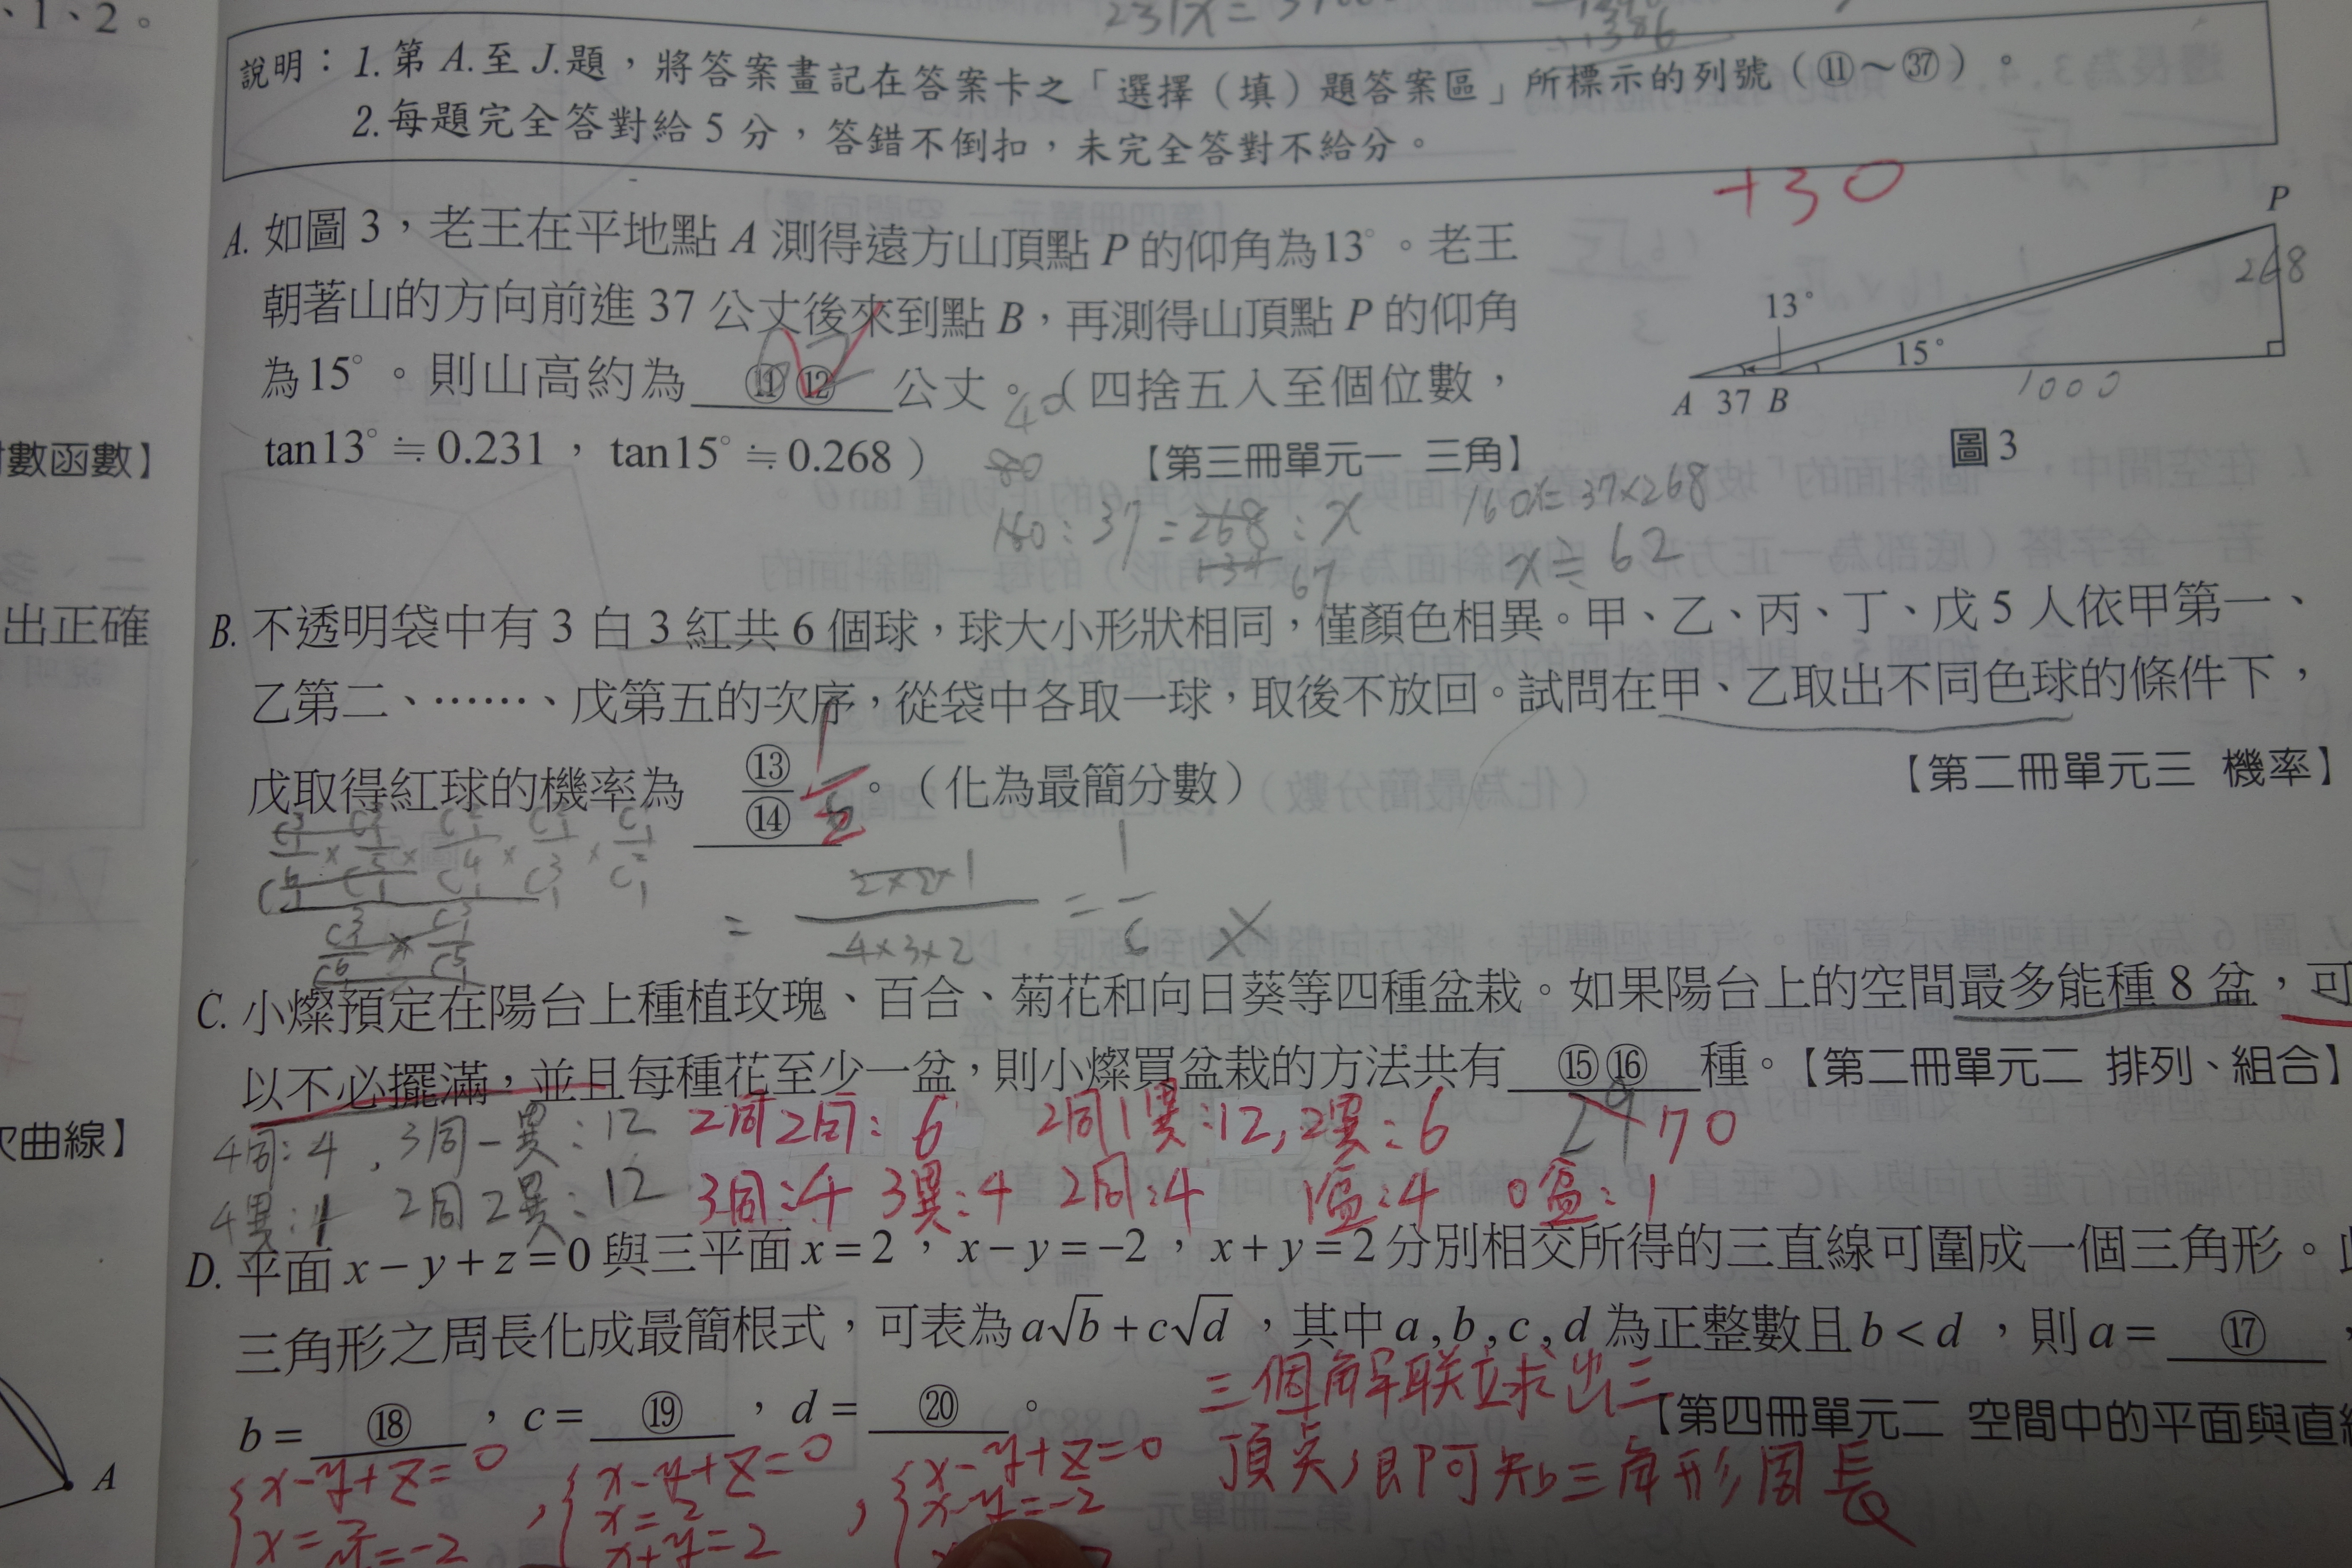 、1、2。
231x=
1386
說明：1.第 A.至 J.題，將答案畫記在答案卡之「選擇（填）題答案區」所標示的列號（⑪～㊲）。
2.每題完全答對給 5 分，答錯不倒扣，未完全答對不給分。
+30
A. 如圖 3，老王在平地點 A 測得遠方山頂點 P 的仰角為13°。老王
朝著山的方向前進 37 公丈後來到點 B，再測得山頂點 P 的仰角
為15°。則山高約為 ⑪⑫ 公丈。（四捨五入至個位數，
tan13°≒0.231，tan15°≒0.268）
【第三冊單元一 三角】
P
268
13°
15°
1000
A 37 B
圖 3
160:37=268:x
67
160x=37×268
x≒62
對數函數】
出正確
B. 不透明袋中有 3 白 3 紅共 6 個球，球大小形狀相同，僅顏色相異。甲、乙、丙、丁、戊 5 人依甲第一、
乙第二、……、戊第五的次序，從袋中各取一球，取後不放回。試問在甲、乙取出不同色球的條件下，
戊取得紅球的機率為 ⑬/⑭ 。（化為最簡分數）
【第二冊單元三 機率】
1/2
= 2×2×1/4×3×2 = 1/6 ×
C. 小燦預定在陽台上種植玫瑰、百合、菊花和向日葵等四種盆栽。如果陽台上的空間最多能種 8 盆，可
以不必擺滿，並且每種花至少一盆，則小燦買盆栽的方法共有 ⑮⑯ 種。【第二冊單元二 排列、組合】
29 70
4同:4，3同一異:12 2同2同:6 2同1異:12，2異:6
4異:1 2同2異:12 3同:4 3異:4 2同:4 1盆:4 0盆:1
次曲線】
D. 平面 x−y+z=0 與三平面 x=2，x−y=−2，x+y=2 分別相交所得的三直線可圍成一個三角形。
三角形之周長化成最簡根式，可表為 a√b+c√d，其中 a,b,c,d 為正整數且 b<d，則 a= ⑰ ，
b= ⑱ ，c= ⑲ ，d= ⑳ 。
【第四冊單元二 空間中的平面與直
三個解联立求出三
頂点，即可知三角形周長
{x-y+z=0 ，{x-y+z=0 ，{x-y+z=0
x=2 x=2 x-y=-2
x+y=2
A